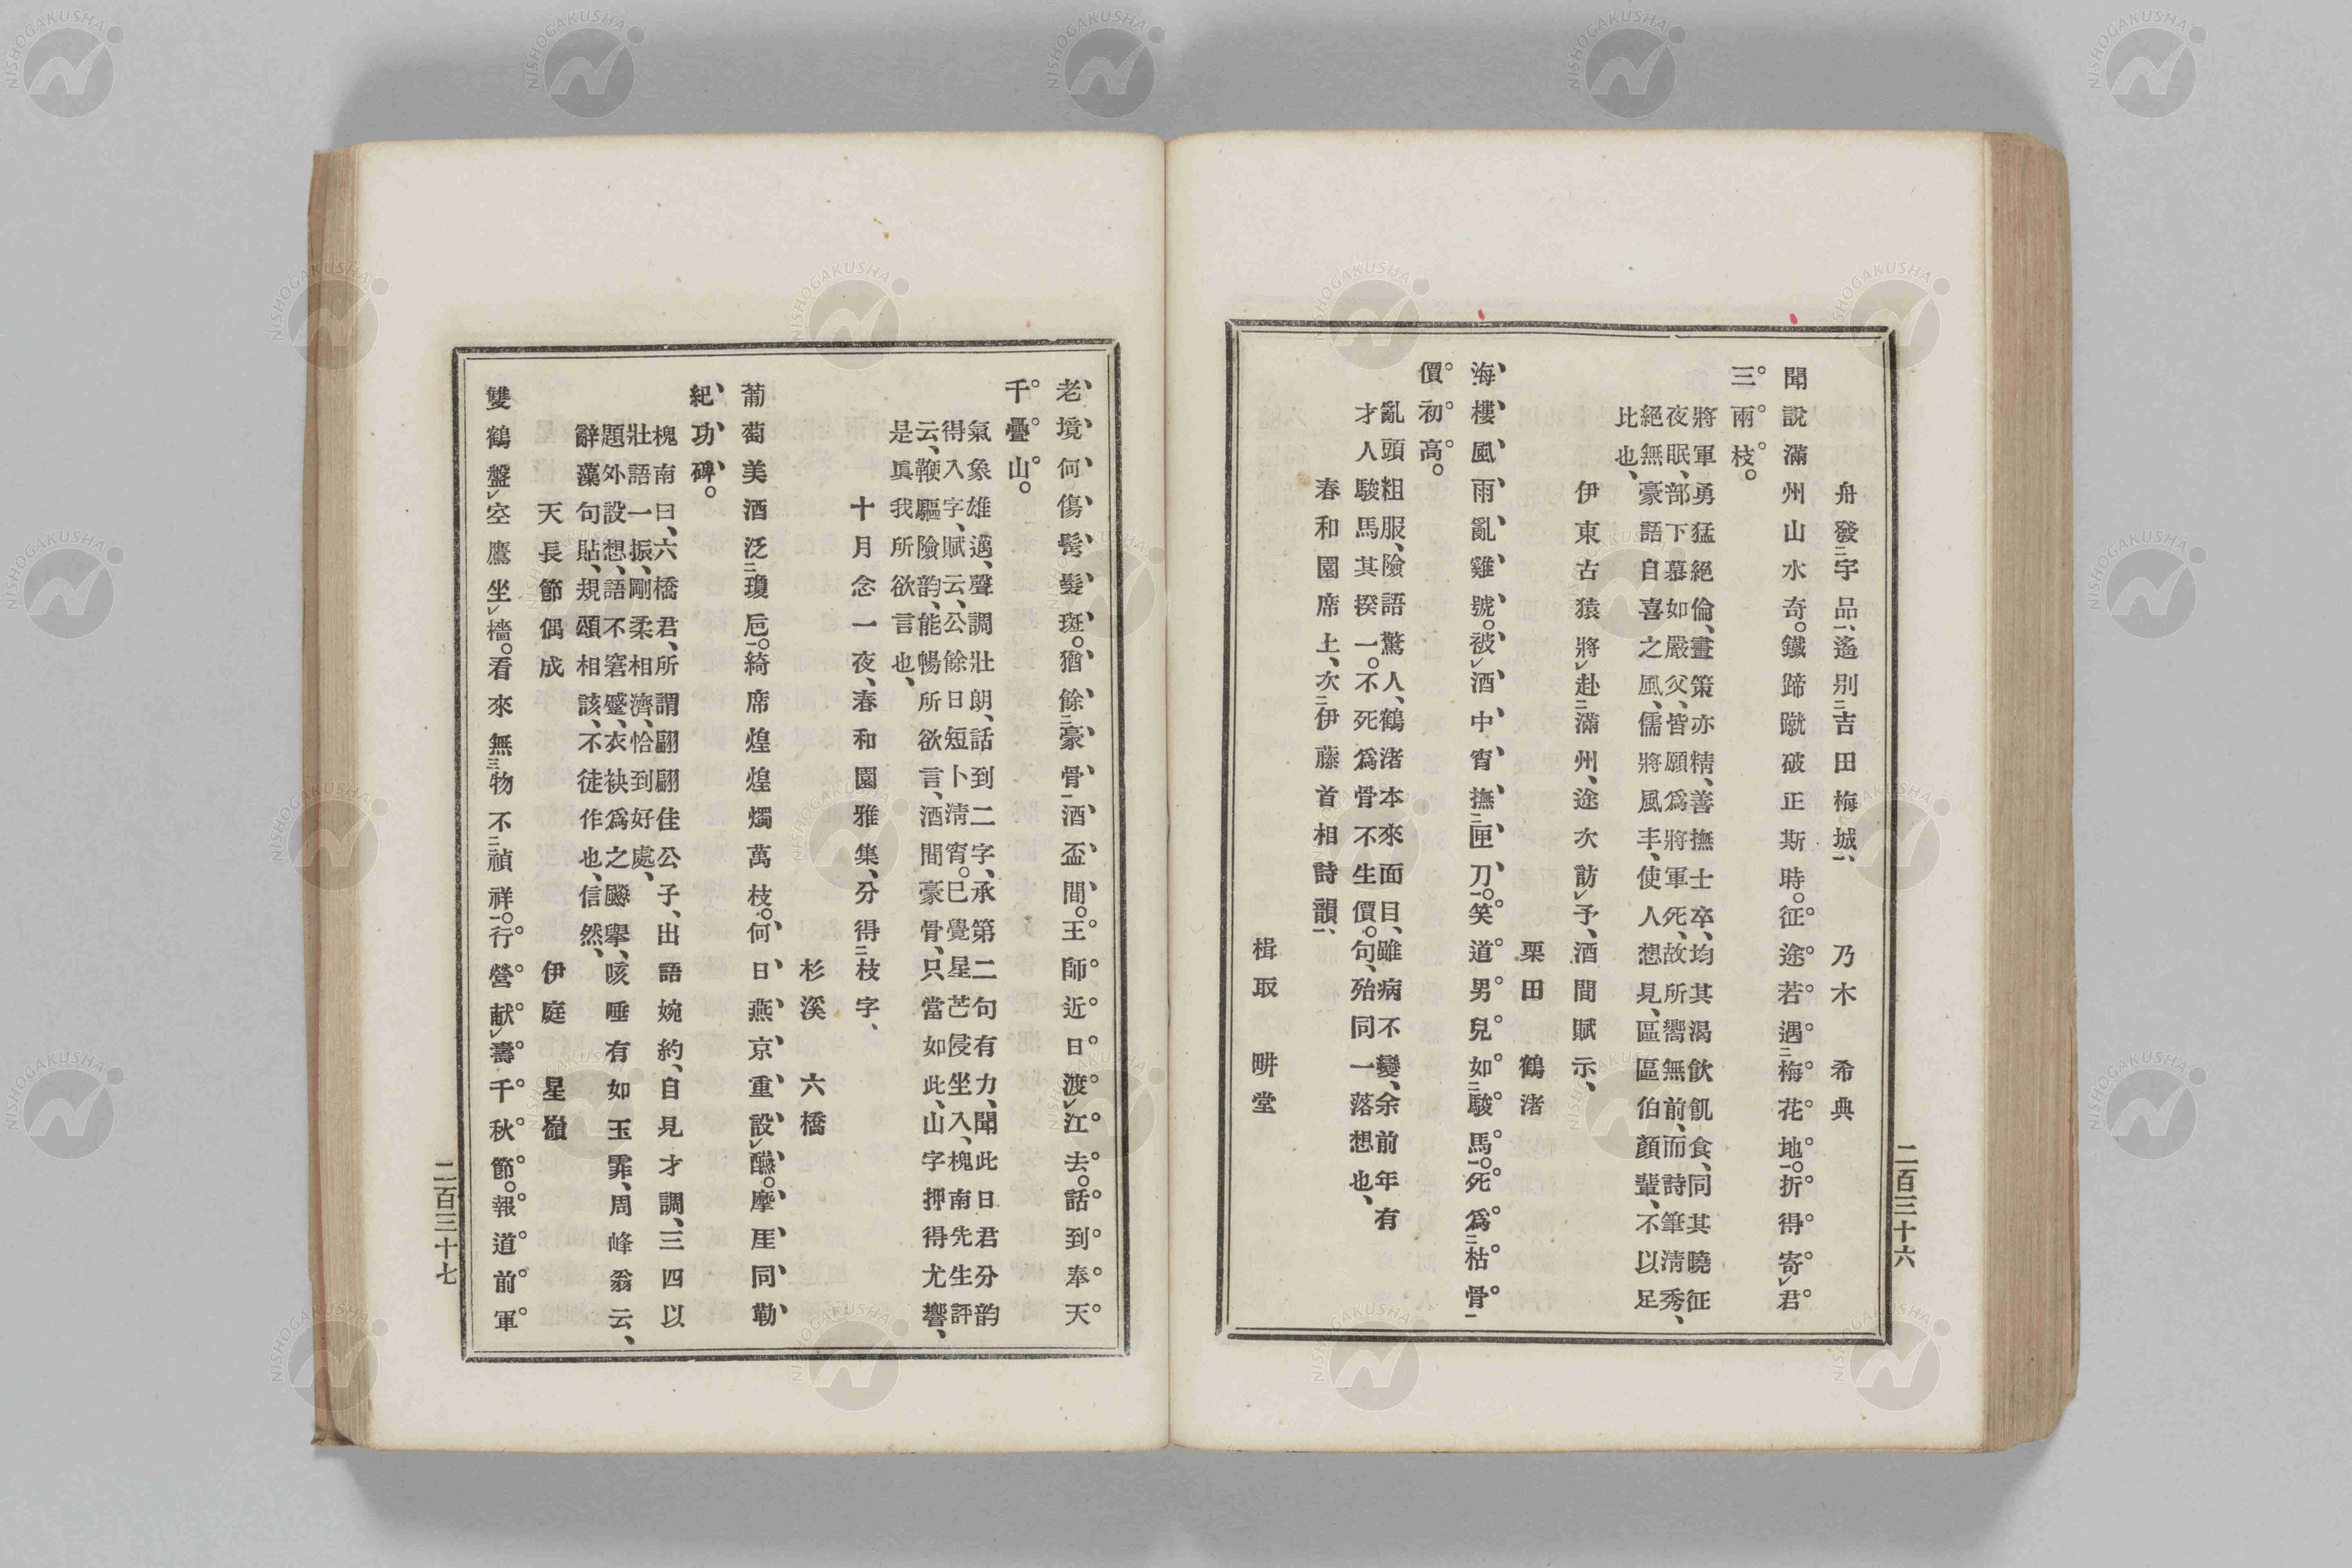 舟發宇品、遙別吉田梅城、 乃木 希典
聞說滿州山水奇。鐵蹄蹴破正斯時。征途若遇梅花地。折得寄君
三兩枝。
將軍勇猛絕倫、畫策亦精、善撫士卒、均其渴飮飢食、同其曉征
夜眠、部下慕如嚴父、皆願爲將軍死、故所嚮無前、而詩筆淸秀、
絕無豪語自喜之風、儒將風丰、使人想見、區區伯顏輩、不以足
比也、
伊東古猿將赴滿州、途次訪予、酒間賦示、
栗田 鶴渚
海樓風雨亂雞號。被酒中宵撫匣刀。笑道男兒如駿馬。死爲枯骨
價初高。
亂頭粗服、險語驚人、鶴渚本來面目、雖病不變、余前年有
才人駿馬其揆一。不死爲骨不生價。句、殆同一落想也、
春和園席上、次伊藤首相詩韻、
楫取 畊堂
二百三十六
老境何傷鬂髮斑。猶餘豪骨酒盃間。王師近日渡江去。話到奉天
千疊山。
氣象雄邁、聲調壯朗、話到二字、承第二句有力、聞此日君分韵
得入字、賦云、公餘日短卜淸宵。已覺星芒侵坐入、槐南先生評
云、鞭驅險韵、能暢所欲言、酒間豪骨、只當如此、山字押得尤響、
是眞我所欲言也、
十月念一夜、春和園雅集、分得枝字、
杉溪 六橋
葡萄美酒泛瓊巵。綺席煌煌燭萬枝。何日燕京重設醼。摩厓同勒
紀功碑。
槐南曰、六橋君、所謂翩翩佳公子、出語婉約、自見才調、三四以
壯語一振、剛柔相濟、恰到好處、
題外設想、語不窘蹙、衣袂爲之飃擧、咳唾有如玉霏、周峰翁云、
辭藻句貼、規頌相該、不徒作也、信然、
天長節偶成 伊庭 星嶺
雙鶴盤空鷹坐檣。看來無物不禎祥。行營献壽千秋節。報道前軍
二百三十七